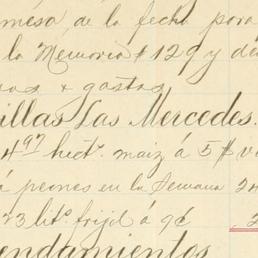 mesa, de la fecha para
la Memoria # 129 y de
y gastos
illas Las Mercedes.
4 97 hect.s maiz á 5 $ v
á peones en la Semana 24
23 lit.s frijol á 9¢ 2
endamientos